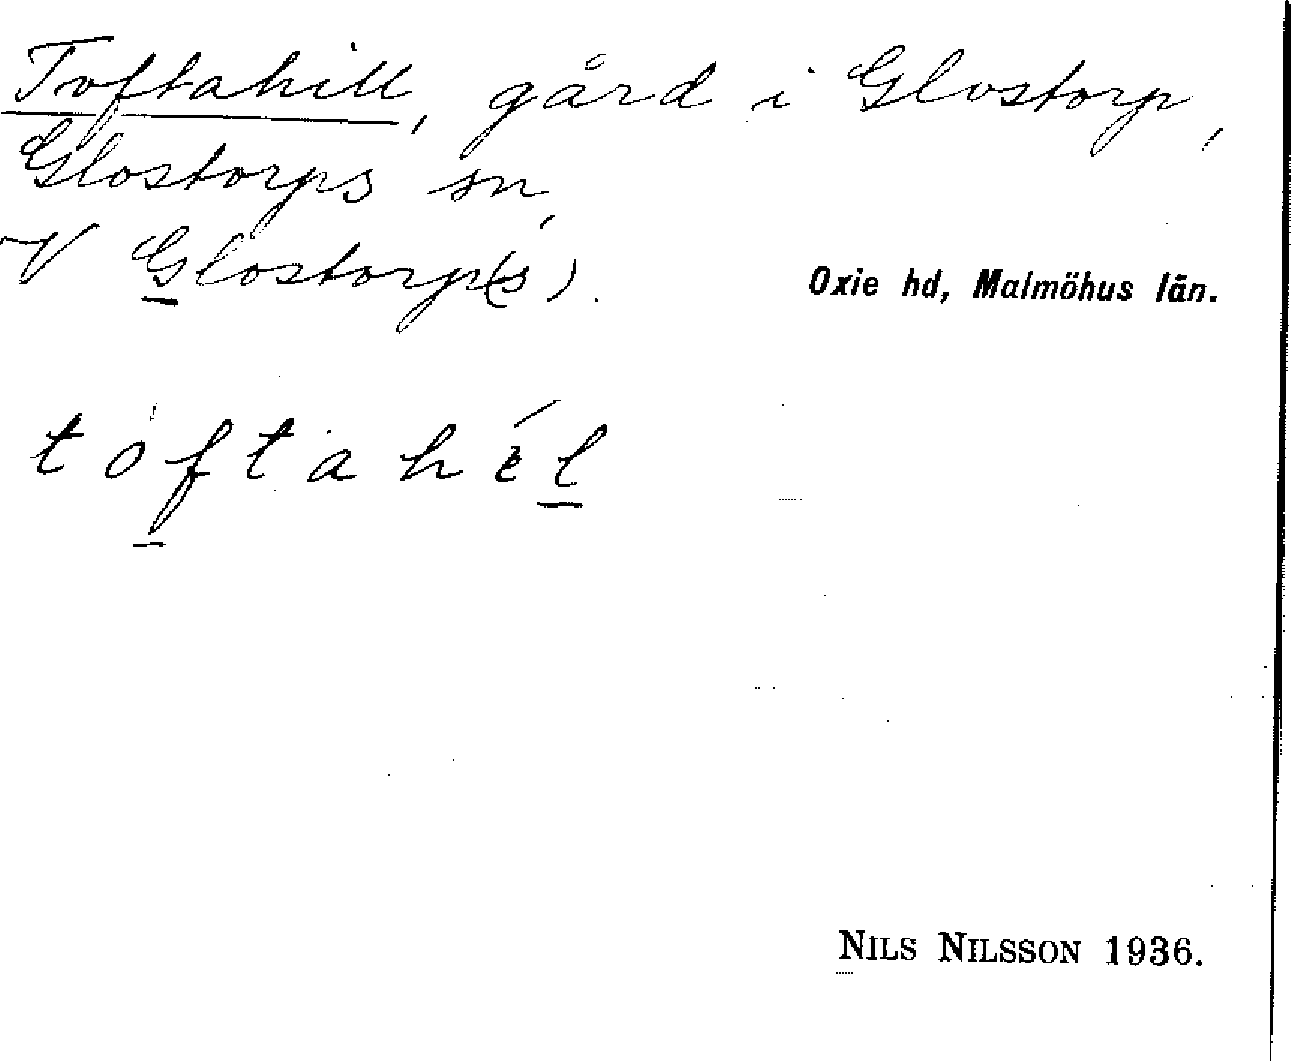 Toftahill, gård i Glostorp,
Glostorps sn,
V Glostorp(s).
Oxie hd, Malmöhus län.
toftahél
NILS NILSSON 1936.